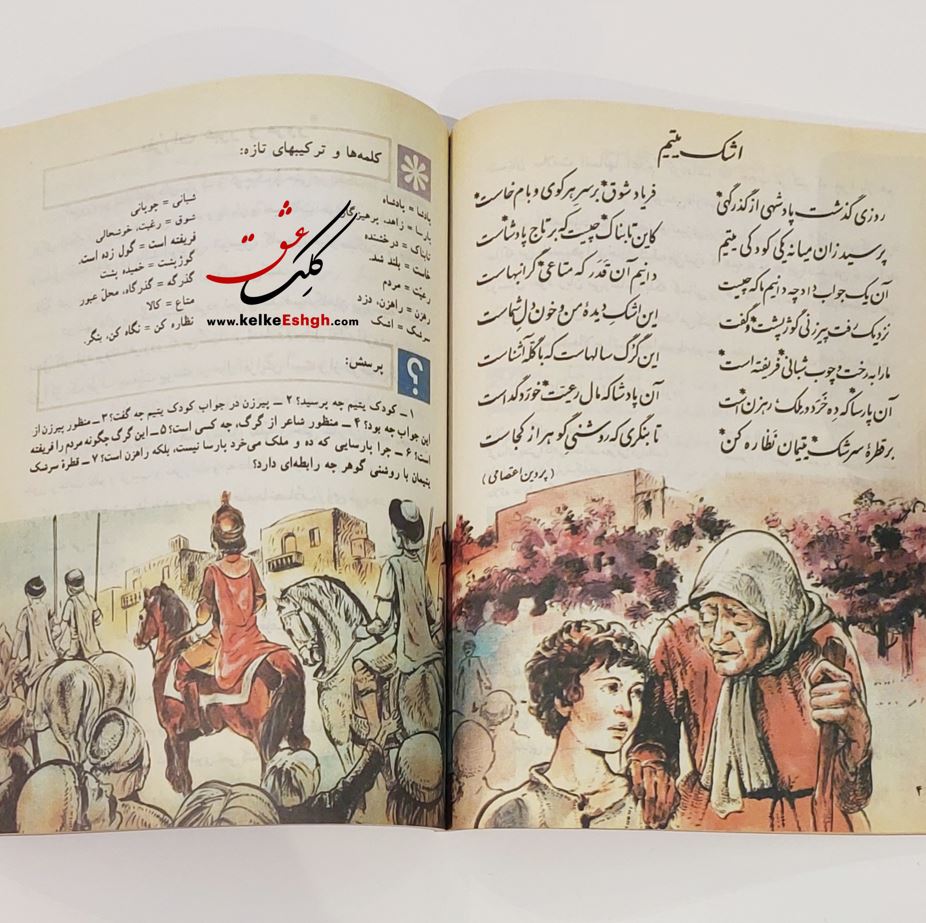 اشک یتیم
روزی گذشت پادشهی از گذرگهی* فریاد شوق* بر سر هر کوی و بام خاست*
پرسید زان میانه یکی کودکی یتیم کاین تابناک* چیست که بر تاج پادشاست
آن یک جواب داد چه دانیم ما که چیست دانیم آن قدر که متاعی* گرانبهاست
نزدیک رفت پیرزنی گوژپشت* و گفت این اشک دیدهٔ من و خون دل شماست
ما را به رخت و چوب شبانی* فریفته است* این گرگ سالهاست که با گله آشناست
آن پارسا* که ده خرد و ملک، رهزن* است آن پادشا* که مال رعیت* خورد گداست
بر قطرهٔ سرشک* یتیمان نظاره کن* تا بنگری که روشنی گوهر از کجاست
(پروین اعتصامی)
۴
کلمه‌ها و ترکیبهای تازه:
پادشا = پادشاه
پارسا = زاهد، پرهیزگار
تابناک = درخشنده
خاست = بلند شد.
رعیّت = مردم
رهزن = راهزن، دزد
سرشک = اشک
شبانی = چوپانی
شوق = رغبت، خوشحالی
فریفته است = گول زده است.
گوژپشت = خمیده پشت
گذرگه = گذرگاه، محلّ عبور
متاع = کالا
نظاره کن = نگاه کن، بنگر.
کلک عشق
www.kelkeEshgh.com
؟
پرسش:
۱ـ کودک یتیم چه پرسید؟ ۲ـ پیرزن در جواب کودک یتیم چه گفت؟ ۳ـ منظور پیرزن از
این جواب چه بود؟ ۴ـ منظور شاعر از گرگ، چه کسی است؟ ۵ـ این گرگ چگونه مردم را فریفته
است؟ ۶ـ چرا پارسایی که ده و ملک می‌خرد پارسا نیست، بلکه راهزن است؟ ۷ـ قطرهٔ سرشک
یتیمان با روشنی گوهر چه رابطه‌ای دارد؟